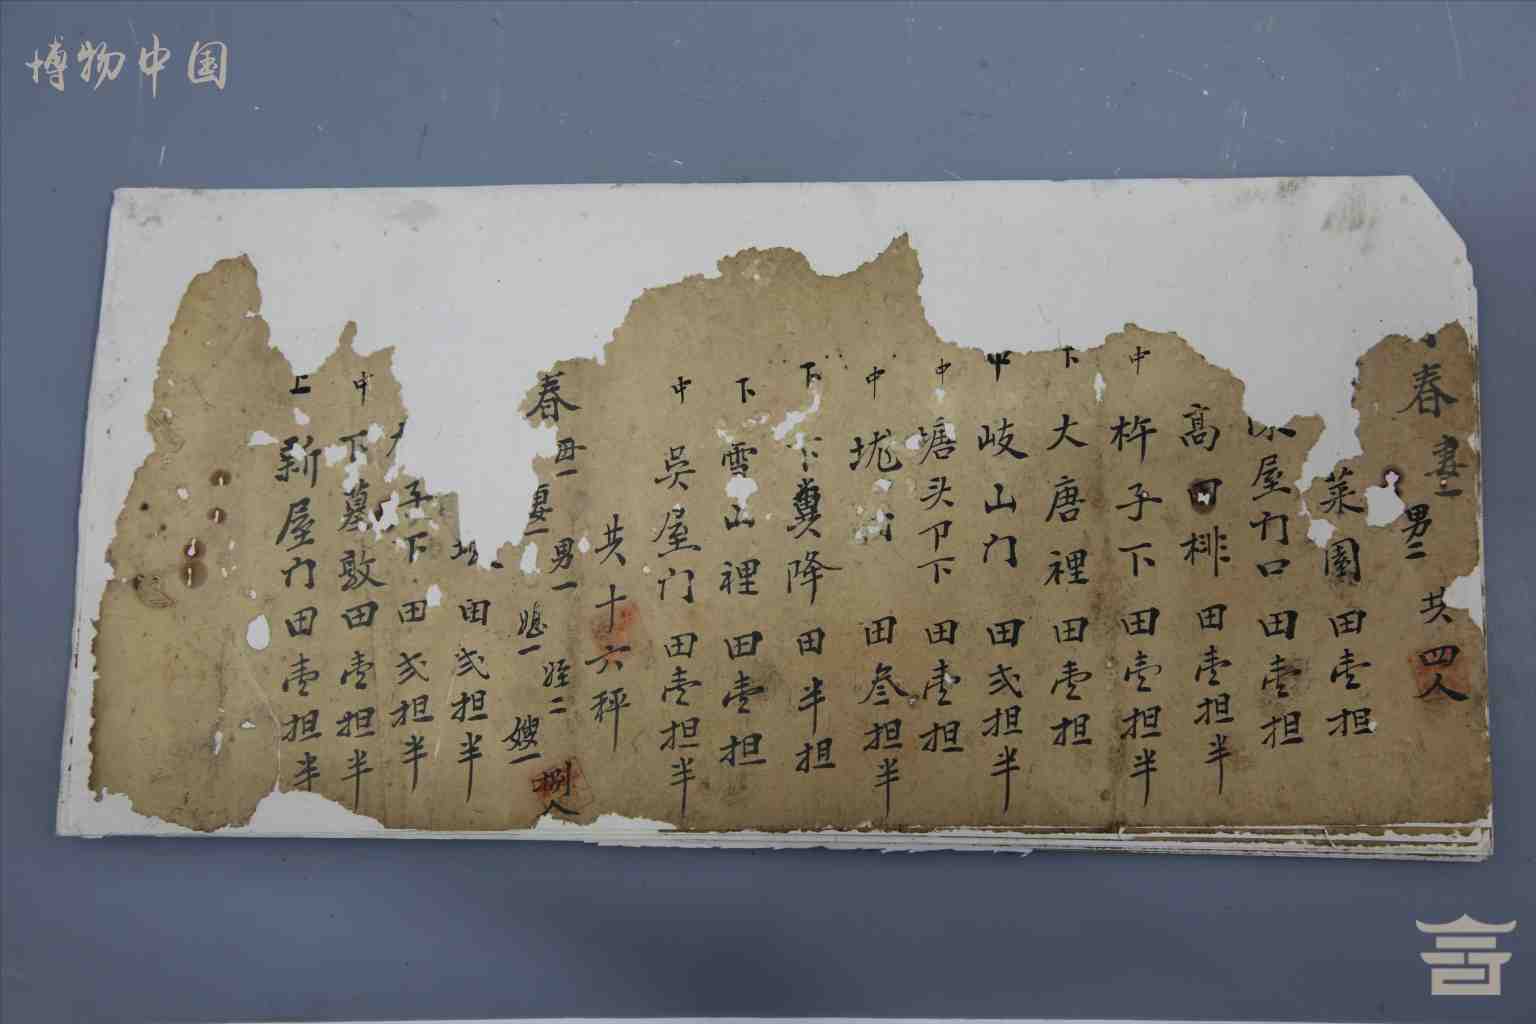 博物中国
春 妻一 男二 共四人
菜園田壹担
屋门口田壹担
髙田排田壹担半
中 杵子下田壹担半
下 大唐裡田壹担
中 岐山门田弍担半
中 塘头卩下田壹担
中 垅 田叁担半
下 下糞降田半担
下 雪山裡田壹担
中 吳屋门田壹担半
共十六秤
春 母一 妻一 男一 媳一 姪二 嫂一 捌人
田弍担半
子下田弍担半
中 下墓敦田壹担半
上 新屋门田壹担半